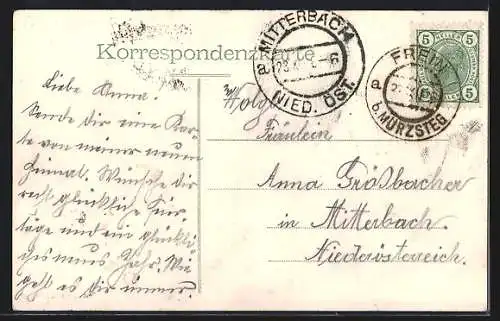 Korrespondenzkarte
MITTERBACH
a
NIED. ÖST.
FREIN
a
b. MÜRZSTEG
5 HELLER 5
5 5
Liebe Anna!
Sende dir eine Kar-
te von meiner neuen
Heimat. Wünsche dir
recht glückliche Feier-
tage und ein glückli-
ches neues Jahr. Wie
geht es dir immer.
Fräulein
Anna Größbacher
in Mitterbach
Niederösterreich.